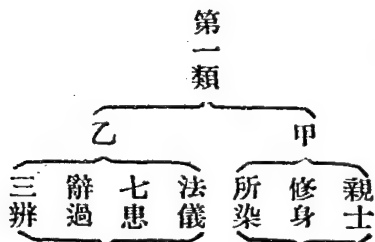 第一類
甲
親士
修身
所染
乙
法儀
七患
辭過
三辨